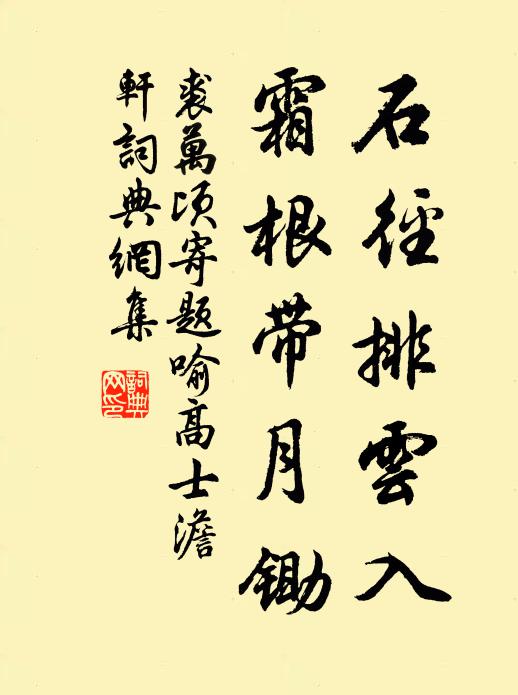 石徑排雲入
霜根带月鋤
裘萬頃寄題喻高士澹
軒詞典網集
詞典
网印